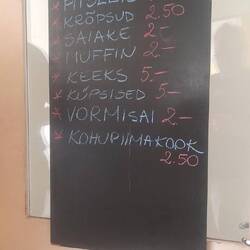 * KRÕPSUD 2.50
* SAIAKE 2-
* MUFFIN 2-
* KEEKS 5.-
* KÜPSISED 5-
* VORMISAI 2-
* KOHUPIIMAKOOK
2.50